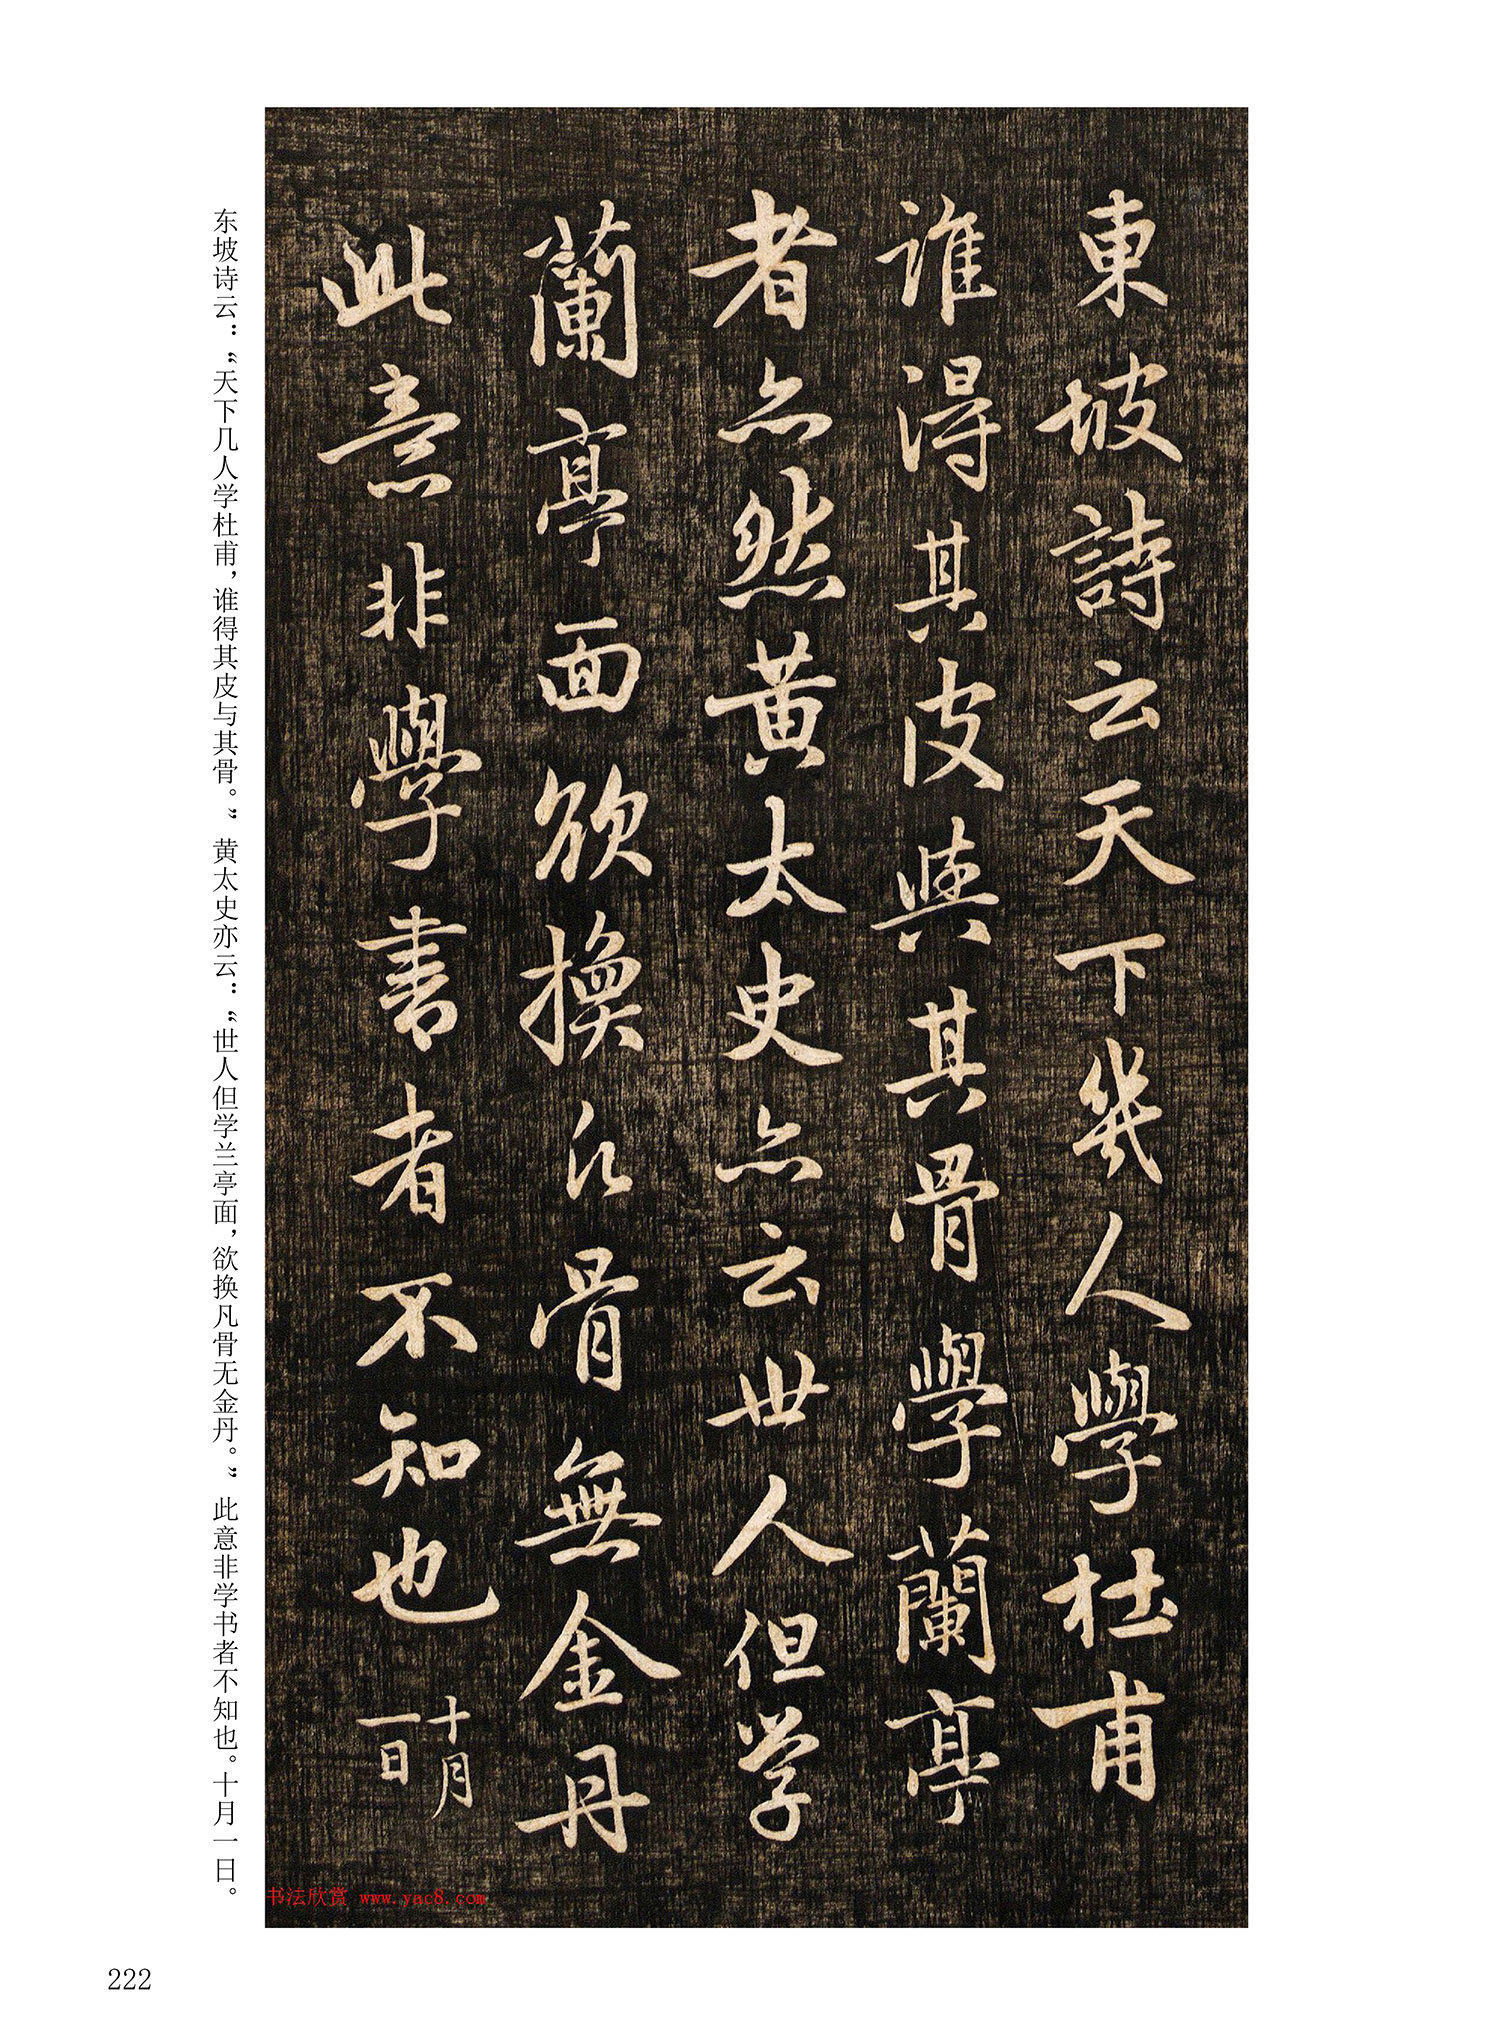 東坡詩云天下幾人學杜甫
谁得其皮與其骨學蘭亭
者亦然黄太史亦云世人但学
蘭亭面欲換凡骨無金丹
此意非學書者不知也十月
一日
东坡诗云：“天下几人学杜甫，谁得其皮与其骨。”黄太史亦云：“世人但学兰亭面，欲换凡骨无金丹。”此意非学书者不知也。十月一日。
书法欣赏 www.yac8.com
222